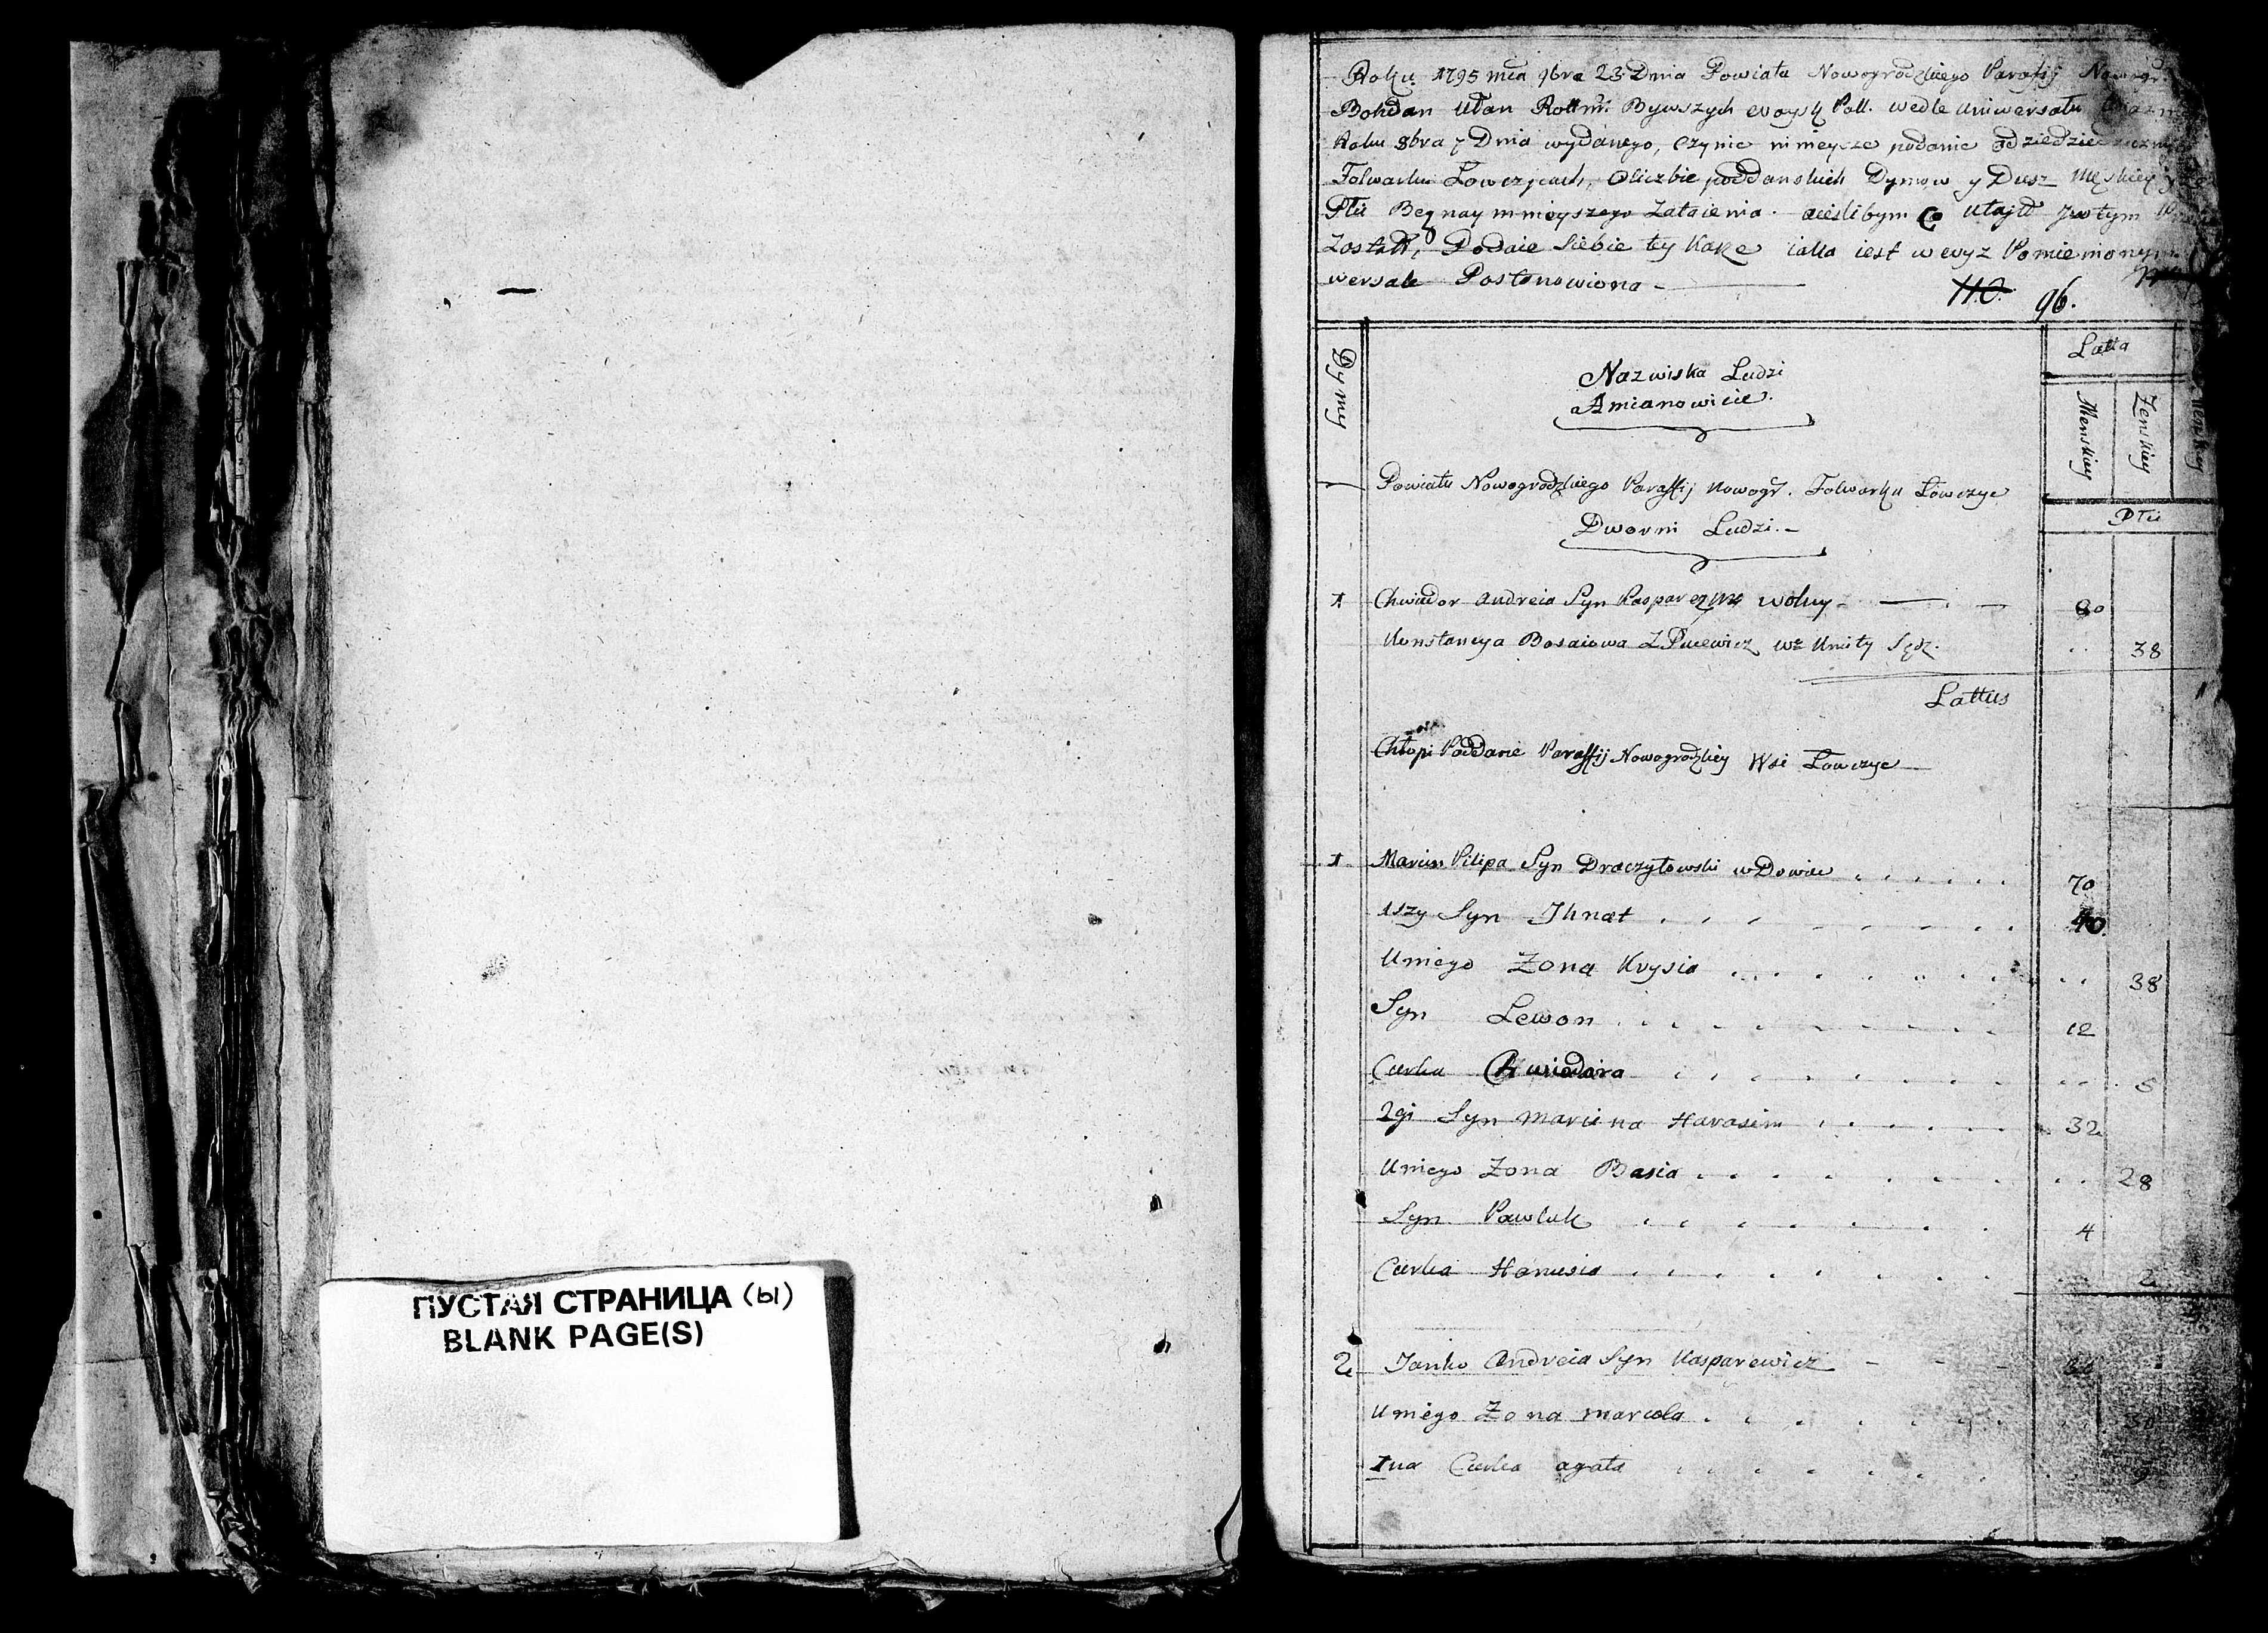 ПУСТАЯ СТРАНИЦА (ы)
BLANK PAGE(S)
Roku 1795 mca 9bra 23 Dnia Powiatu Nowogrodzkiego Parafij
Bohdan Ułan Rottm. Bywszych woysk Poll. wedle Uniwersału
Roku 8bra 7 Dnia wydanego, Czynie ninieysze podanie
Folwarku Łowczycach, O liczbie poddanskich Dymow y Dusz Męskiey y
Płci Beż naymnieyszego Zataienia. a ieslibym Co Utajił y w tym
Został, Podaie Siebie tey Karze iaka iest w wyz Pomienionym
wersale Postanowiona —
110. 96.
Dymy
Nazwiska Ludzi
a Mianowicie.
Latta
Menskiey
Zenskiey
Płci
Powiatu Nowogrodzkiego Paraffij Nowogr. Folwarku Łowczyc
Dworni Ludzi. —
1 Chwiedor Andreia Syn wolny — 80
Konstancya Bosaiowa Z Pucewicz 38
Lattus
Chłopi Poddane Paraffij Nowogrodzkiey Wsi Łowczyc —
1 Marcin Pilipa Syn Draczyłowski wDowiec 70
1szy Syn Ihnat 40.
U niego Zona Krysia 38
Syn Lewon 12
Curka Chwiedora 5
2gi Syn Marcina Harasim 32
U niego Zona Basia 28
Syn Pawluk 4
Curka Hanusia 2
2 Janko Andreia Syn Kasparewicz
U niego Zona Marcela
1na Curka Agata